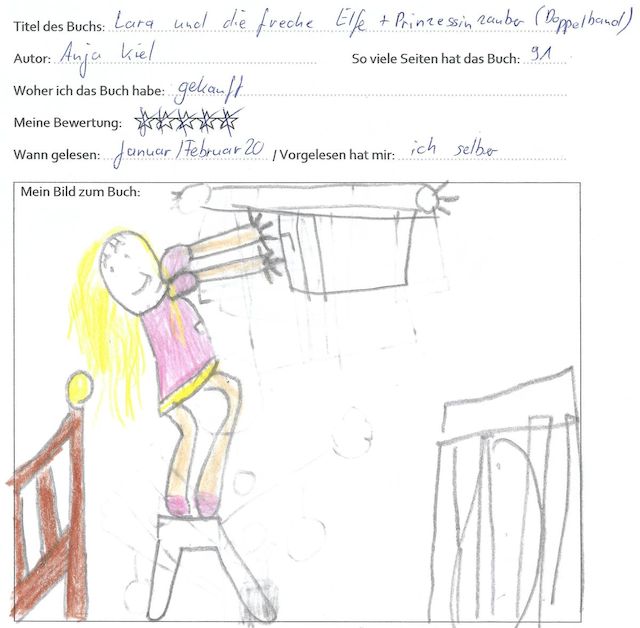 Titel des Buchs: Lara und die freche Elfe + Prinzessinzauber (Doppelband)
Autor: Anja Kiel So viele Seiten hat das Buch: 91
Woher ich das Buch habe: gekauft
Meine Bewertung:
Wann gelesen: Januar/Februar 20 / Vorgelesen hat mir: ich selber
Mein Bild zum Buch: